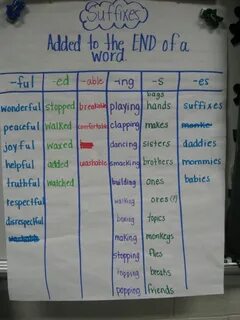 Suffixes
Added to the END of a
word.
-ful -ed -able -ing -s -es
bags
wonderful stopped breakable playing hands suffixes
peaceful walked comfortable clapping makes monke
joyful waxed dancing sisters daddies
helpful added washable smacking brothers mommies
truthful watched building ones babies
respectful walking ores (?)
disrespectful boxing topics
making monkeys
stopping flies
hopping breaks
popping friends